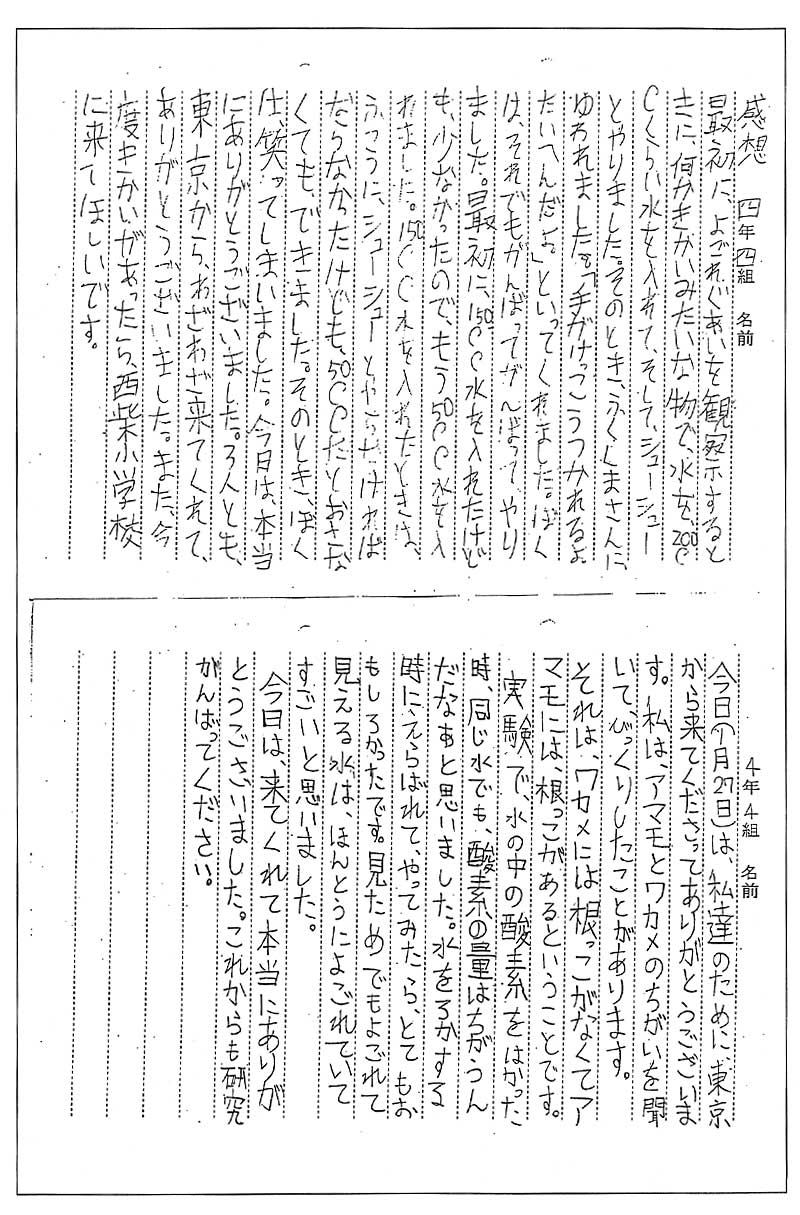 感想　四年四組　名前
最初に、よごれぐあいを観察すると
きに、何かきかいみたいな物で、水を、200C
Cくらい水を入れて、そして、シューシュー
とやりました。そのとき、ふくしまさんに、
ゆわれました。「手がけっこうつかれるよ
たいへんだよ。」といってくれました。ぼく
は、それでもがんばってがんばってやり
ました。最初に、150CC水を入れたけど
も、少なかったので、もう50CC水を入
れました。150CC水を入れたときは、
ふつうに、シューシューとやらなければ
ならなかったけども、50CCだとおさな
くても、できました。そのとき、ぼく
は、笑ってしまいました。今日は、本当
にありがとうございました。3人とも、
東京から、わざわざ来てくれて、
ありがとうございました。また、今
度きかいがあったら、西柴小学校
に来てほしいです。
4年4組　名前
今日(1月27日)は、私達のために、東京
から来てくださってありがとうございま
す。私は、アマモとワカメのちがいを聞
いて、びっくりしたことがあります。
それは、ワカメには根っこがなくてア
マモには、根っこがあるということです。
実験で、水の中の酸素をはかった
時、同じ水でも、酸素の量はちがうん
だなぁと思いました。水をろかする
時にえらばれて、やってみたら、とてもお
もしろかったです。見ためでもよごれて
見える水は、ほんとうによごれていて
すごいと思いました。
今日は、来てくれて本当にありが
とうございました。これからも研究
がんばってください。